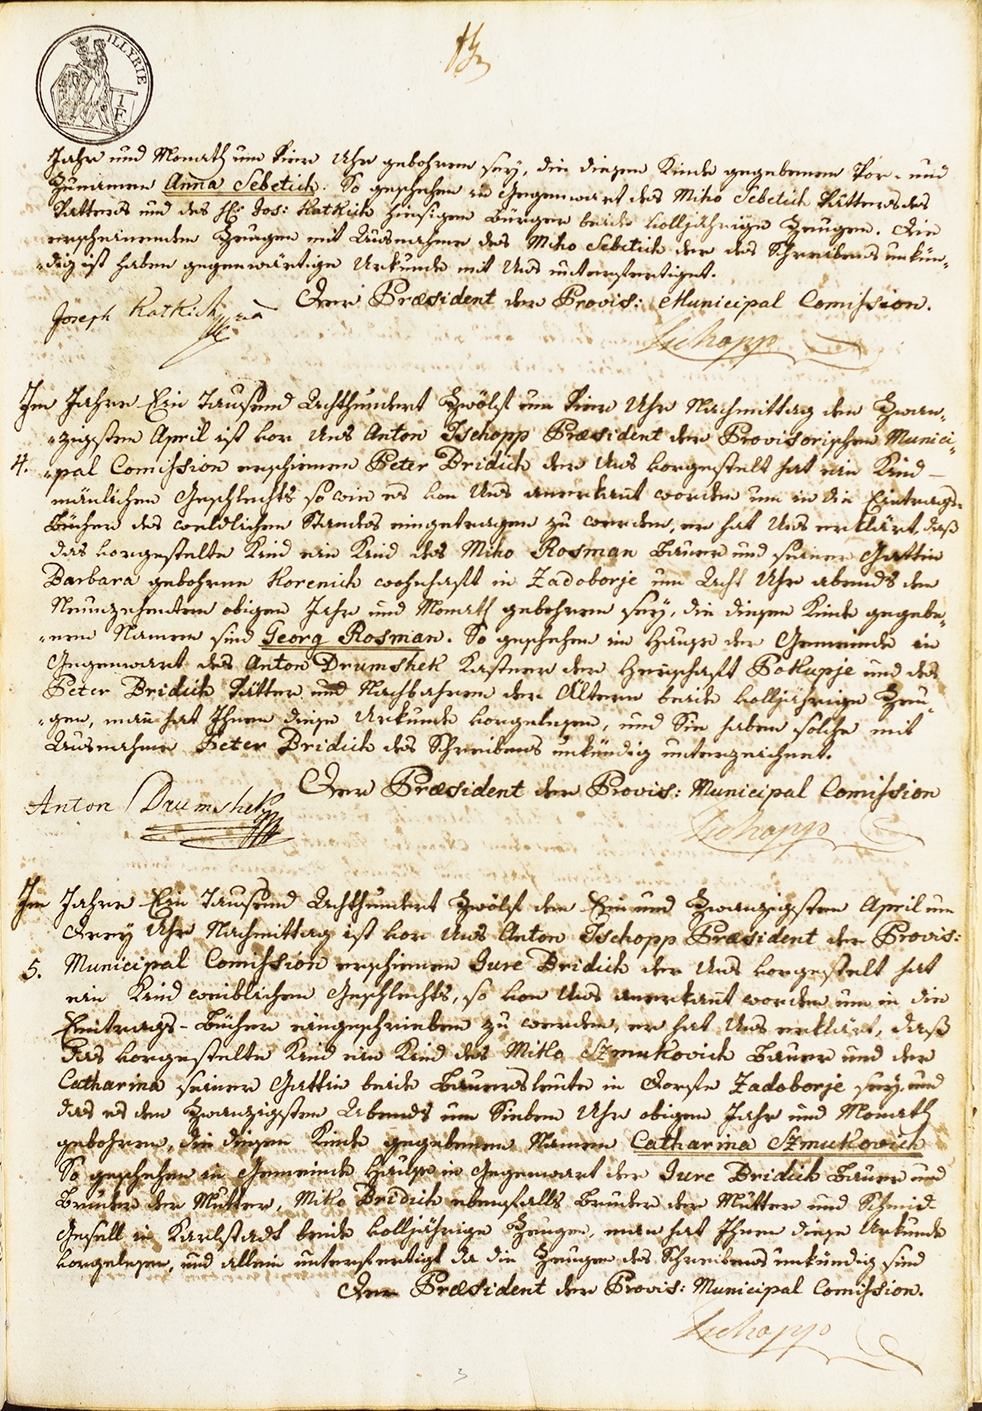 ILLYRIE
1 F
Jahr und Monath um Vier Uhr gebohren sey, die diesem Kinde gegebenen Vor- und
Zunamen Anna Sebetich. So geschehen in Gegenwart des Miko Sebetich Vatters des
Vatters und des H: Jos: Katkich hiesigen Bürger beide volljährige Zeugen. Die
erscheinenden Zeugen mit Ausnahme des Miko Sebetich der des Schreibens unkün-
dig ist haben gegenwärtige Urkunde mit Uns unterfertiget.
Der Præsident der Provis: Municipal Comission.
Joseph Katkich
Tschopp
Im Jahre Ein Tausend Achthundert Zwölf um Vier Uhr Nachmittag den Zwan-
zigsten April ist vor Uns Anton Tschopp Præsident der Provisorischen Munici-
4. pal Comission erschienen Peter Dridich der Uns vorgestelt hat ein Kind
mänlichen Geschlechts so wie es von Uns anerkant worden um in die Eintrags-
Bücher des weltlichen Standes eingetragen zu werden, er hat Uns erklärt, daß
das vorgestelte Kind ein Kind des Miko Rosman Bauer und seiner Gattin
Barbara gebohrne Korenich wohnhaft in Zadoborje um Acht Uhr abends den
Neunzehenten obigen Jahr und Monath gebohren sey, die diesem Kinde gegebe-
nen Namen sind Georg Rosman. So geschehen im Hause der Gemeinde in
Gegenwart des Anton Drumshek Kastner der Herrschaft Pokupje und des
Peter Dridich Vätter und Nachbahren der Ältern beide volljährige Zeu-
gen, man hat Ihnen diese Urkunde vorgelesen, und Sie haben solche mit
Ausnahme Peter Dridich des Schreibens unkündig unterzeichnet.
Der Præsident der Provis: Municipal Comission
Anton Drumshek
Tschopp
Im Jahre Ein Tausend Achthundert Zwölf den Ein und Zwanzigsten April um
Drey Uhr Nachmittag ist vor Uns Anton Tschopp Præsident der Provis:
5. Municipal Comission erschienen Jure Dridich der Uns vorgestelt hat
ein Kind weiblichen Geschlechts, so von Uns anerkant worden um in die
Eintrags-Bücher eingeschrieben zu werden, er hat Uns erklärt, daß
das vorgestelte Kind ein Kind des Mitko Szmukovich Bauer und der
Catharina seiner Gattin beide Bauersleute in Dorfe Zadoborje sey, und
das es den Zwanzigsten Abends um Sieben Uhr obigen Jahr und Monath
gebohren, die diesem Kinde gegebenen Namen Catharina Szmukovich
So geschehen in Gemeinde Hause in Gegenwart der Jure Dridich Bauer und
Bruder der Mutter, Miko Dridich ebenfalls Bruder der Mutter und Schmid
Gesell in Karlstadt beide volljährige Zeugen, man hat Ihnen diese Urkunde
vorgelesen, und allein unterfertigt da die Zeugen des Schreibens unkündig sind
Der Præsident der Provis: Municipal Comission.
Tschopp
3